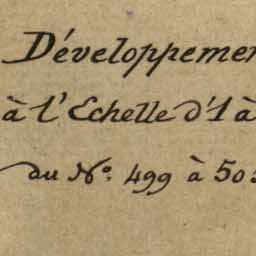 Développemen
à l'Echelle d'1 à
du N°. 499 à 50